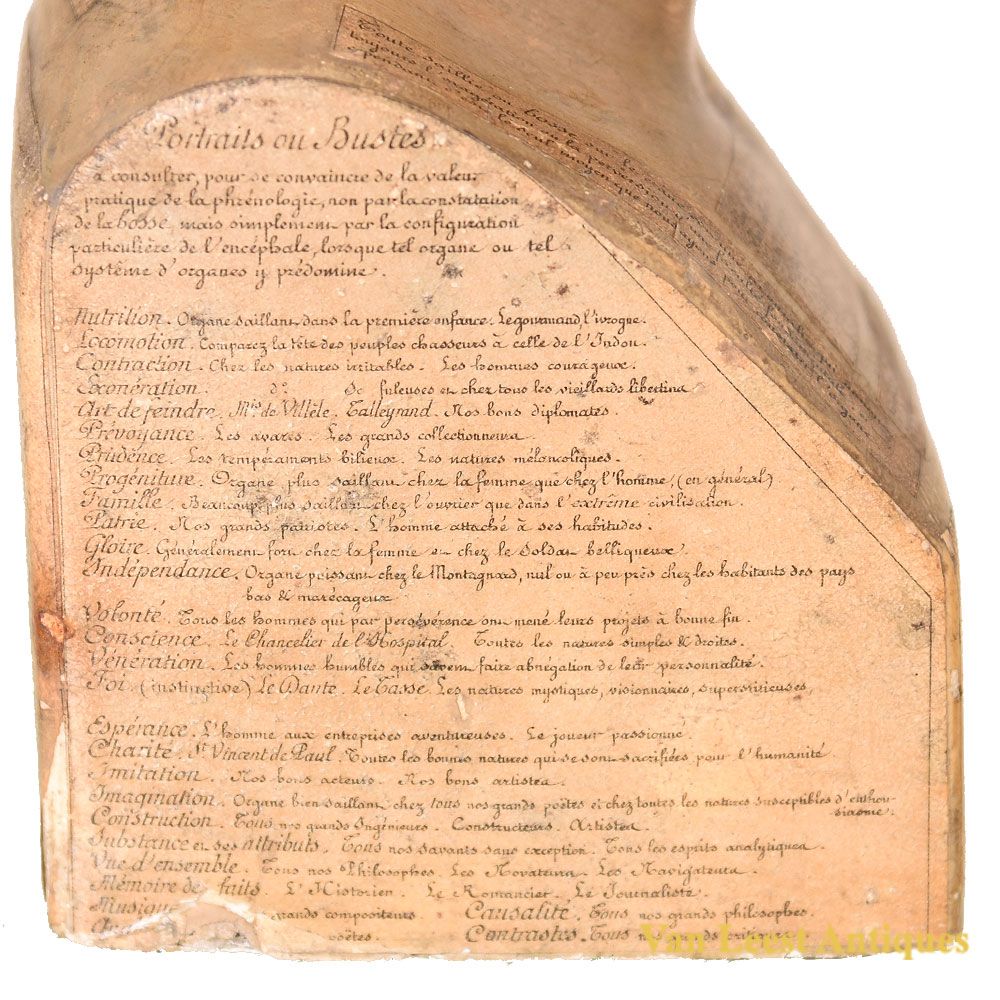 Toute saillie ou bosse sur le
toujours l'exagération ou la perversion
Portraits ou Bustes
à consulter, pour se convaincre de la valeur
pratique de la phrénologie, non par la constatation
de la bosse, mais simplement par la configuration
particulière de l'encéphale, lorsque tel organe ou tel
système d'organes y prédomine.
Nutrition. Organe saillant dans la première enfance. Le gourmand, l'ivrogne.
Locomotion. Comparez la tête des peuples chasseurs à celle de l'Indou.
Contraction. Chez les natures irritables. Les hommes courageux.
Exonération. do do fuleuses et chez tous les vieillards libertins
Art de feindre. Mis de Villèle. Talleyrand. Nos bons diplomates.
Prévoyance. Les avares. Les grands collectionneurs.
Prudence. Les tempéraments bilieux. Les natures mélancoliques.
Progéniture. Organe plus saillant chez la femme que chez l'homme, (en général)
Famille. Beaucoup plus saillant chez l'ouvrier que dans l'extrême civilisation.
Patrie. Nos grands patriotes. L'homme attaché à ses habitudes.
Gloire. Généralement fort chez la femme et chez le Soldat belliqueux.
Indépendance. Organe puissant chez le Montagnard, nul ou à peu près chez les habitants des pays
bas & marécageux
Volonté. Tous les hommes qui par persévérance ont mené leurs projets à bonne fin.
Conscience. Le Chancelier de l'Hospital. Toutes les natures simples & droites.
Vénération. Les hommes humbles qui savent faire abnégation de leur personnalité.
Foi (instinctive) Le Dante. Le Tasse. Les natures mystiques, visionnaires, superstitieuses,
Espérance. L'homme aux entreprises aventureuses. Le joueur passionné.
Charité. St Vincent de Paul. Toutes les bonnes natures qui se sont sacrifiées pour l'humanité
Imitation. Nos bons acteurs. Nos bons artistes.
Imagination. Organe bien saillant chez tous nos grands poëtes et chez toutes les natures susceptibles d'enthou-
siasme.
Construction. Tous nos grands Ingénieurs. Constructeurs. Artistes.
Substance et ses attributs. Tous nos savants sans exception. Tous les esprits analytiques.
Vue d'ensemble. Tous nos Philosophes. Les Novateurs. Les Navigateurs.
Mémoire de faits. L'Historien. Le Romancier. Le Journaliste.
Musique grands compositeurs Causalité. Tous nos grands philosophes.
poëtes. Contrastes. Tous nos grands critiques
Van Leest Antiques